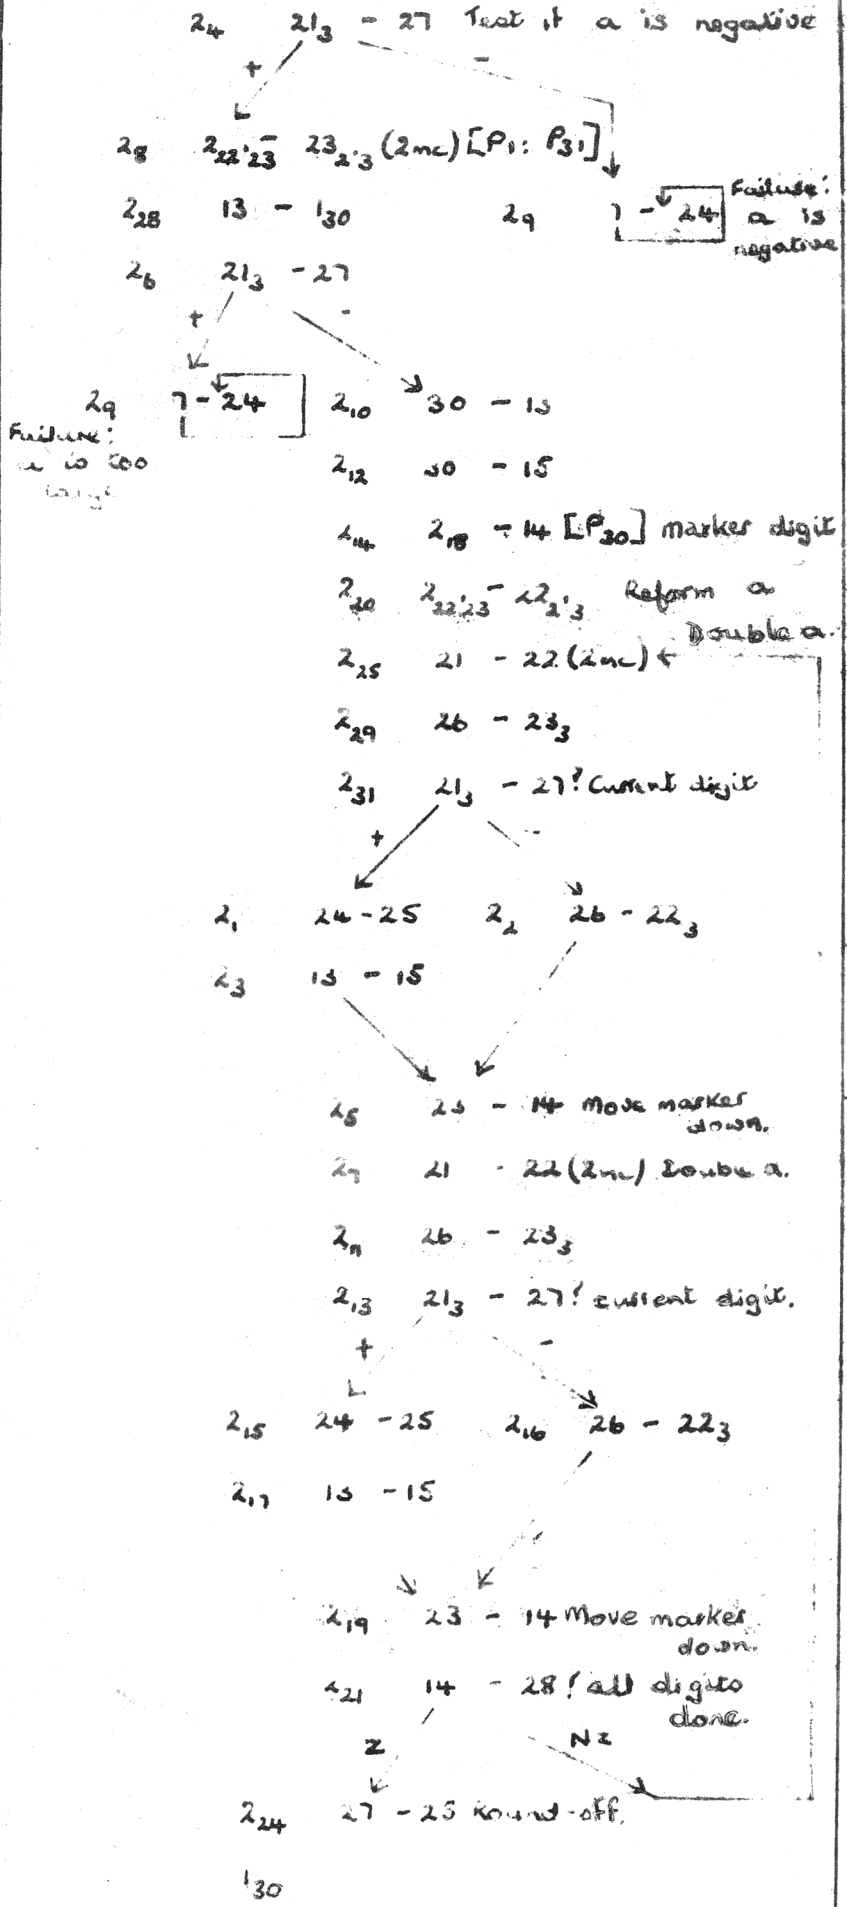 2₄ 21₃ - 27 Test if a is negative
+ -
2₈ 2₂₂.₂₃ - 23₂.₃ (2mc) [P₁: P₃₁]
2₂₈ 13 - 1₃₀
2₉ 7 - 24 Failure: a is negative
2₆ 21₃ - 27
+ -
2₉ 7 - 24
Failure: a is too
2₁₀ 30 - 13
2₁₂ 30 - 15
2₁₄ 2₁₈ - 14 [P₃₀] marker digit
2₂₀ 2₂₂.₂₃ - 22₂.₃ Reform a
Double a.
2₂₅ 21 - 22 (2mc)
2₂₉ 26 - 23₃
2₃₁ 21₃ - 27? Current digit
+ -
2₁ 24 - 25 2₂ 26 - 22₃
2₃ 13 - 15
2₅ 23 - 14 Move marker
down.
2₇ 21 - 22 (2mc) Double a.
2₁₁ 26 - 23₃
2₁₃ 21₃ - 27? current digit.
+ -
2₁₅ 24 - 25 2₁₆ 26 - 22₃
2₁₇ 13 - 15
2₁₉ 23 - 14 Move marker
down.
2₂₁ 14 - 28? all digits
done.
Z NZ
2₂₄ 27 - 25 Round-off.
1₃₀